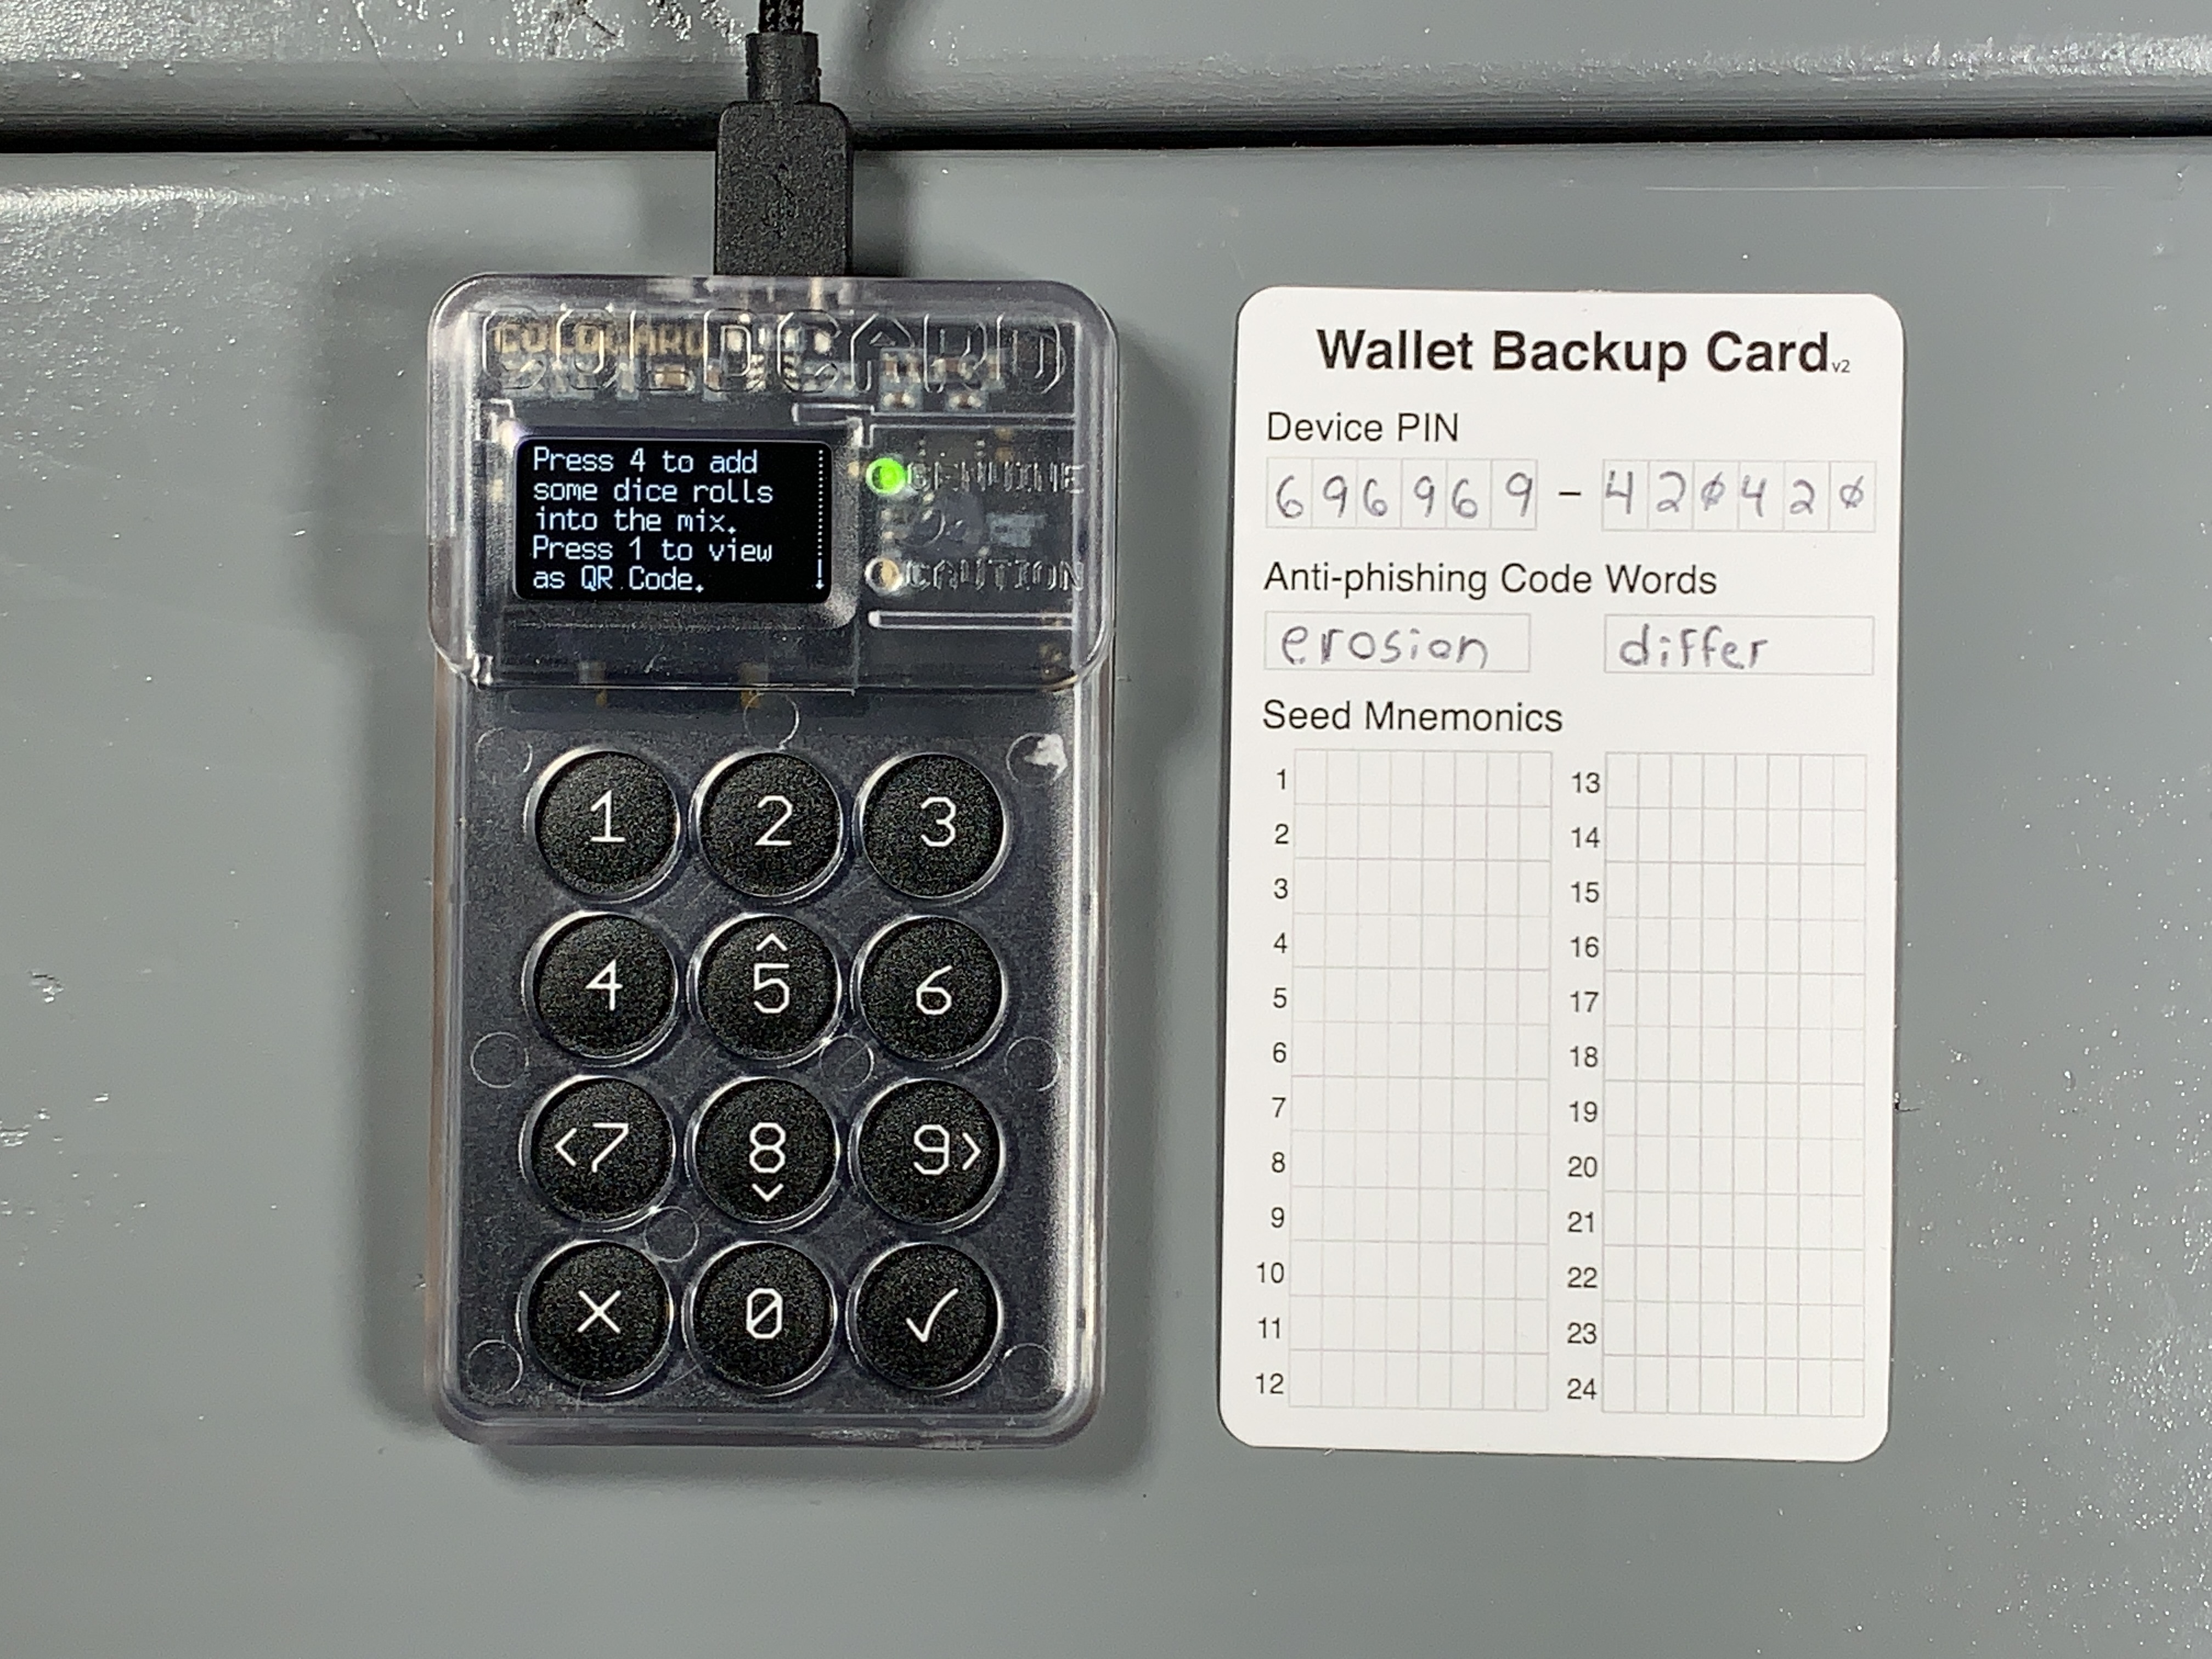 COLDCARD
COLDCARD
Press 4 to add
some dice rolls
into the mix.
Press 1 to view
as QR Code.
GENUINE
CAUTION
1 2 3
4 5 6
<7 8 9>
× 0 ✓
Wallet Backup Card v2
Device PIN
696969 - 420420
Anti-phishing Code Words
erosion differ
Seed Mnemonics
1 13
2 14
3 15
4 16
5 17
6 18
7 19
8 20
9 21
10 22
11 23
12 24